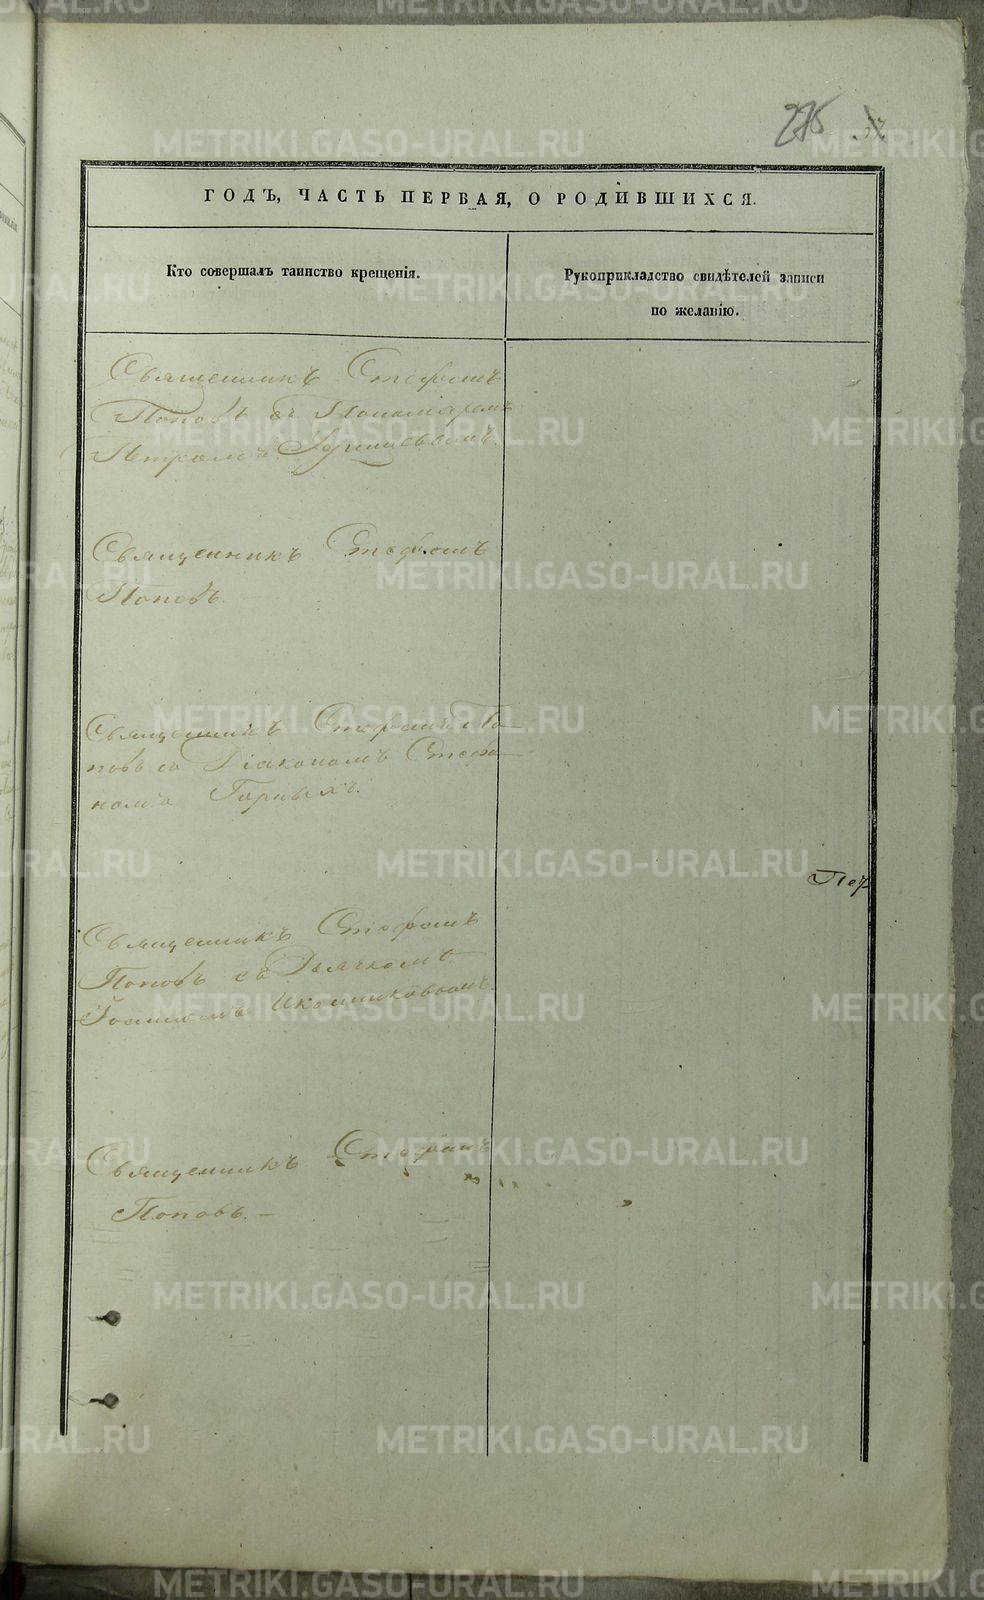 275 37
ГОДЪ, ЧАСТЬ ПЕРВАЯ, О РОДИВШИХСЯ.
Кто совершалъ таинство крещенія.
Рукоприкладство свидѣтелей записи
по желанію.
Священникъ Стефанъ
Поповъ съ Пономаремъ
Петромъ
Священникъ Стефанъ
Поповъ.
Священникъ Стефанъ По-
повъ со Діакономъ Стефа-
номъ Горныхъ.
Пер
Священникъ Стефанъ
Поповъ съ Дьячкомъ
Іоанномъ Иконниковымъ.
Священникъ Стефанъ
Поповъ. —
METRIKI.GASO-URAL.RU